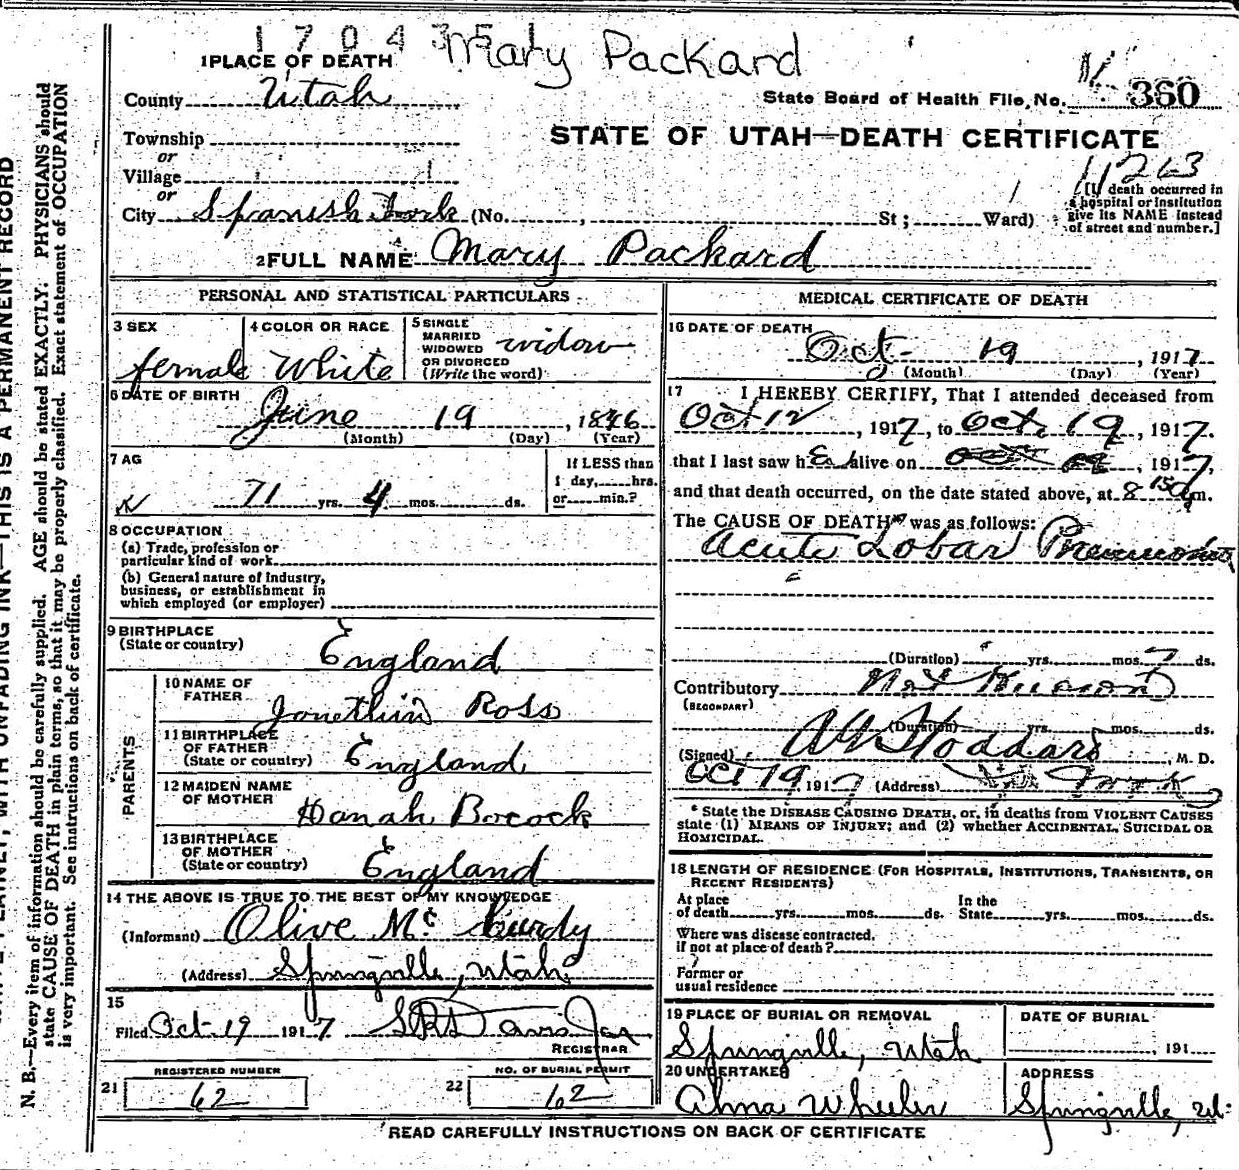 1 7 0 4 3 5
Mary Packard
1 PLACE OF DEATH
County Utah
State Board of Health File No. 360
Township
STATE OF UTAH—DEATH CERTIFICATE
or
Village
11263
or
City Spanish Fork (No. , St; Ward)
[If death occurred in
a hospital or institution
give its NAME instead
of street and number.]
2 FULL NAME Mary Packard
PERSONAL AND STATISTICAL PARTICULARS
3 SEX
female
4 COLOR OR RACE
White
5 SINGLE
MARRIED
WIDOWED
OR DIVORCED
(Write the word)
widow
6 DATE OF BIRTH
June 19, 1846
(Month) (Day) (Year)
7 AG
71 yrs. 4 mos. ds.
If LESS than
1 day, hrs.
or min.?
8 OCCUPATION
(a) Trade, profession or
particular kind of work
(b) General nature of industry,
business, or establishment in
which employed (or employer)
9 BIRTHPLACE
(State or country)
England
PARENTS
10 NAME OF
FATHER
Jonethin Ross
11 BIRTHPLACE
OF FATHER
(State or country)
England
12 MAIDEN NAME
OF MOTHER
Hanah Bocock
13 BIRTHPLACE
OF MOTHER
(State or country)
England
14 THE ABOVE IS TRUE TO THE BEST OF MY KNOWLEDGE
(Informant) Olive Mc Curdy
(Address) Springville, Utah
15
Filed Oct 19 1917. Davis
REGISTRAR
REGISTERED NUMBER
21 62
NO. OF BURIAL PERMIT
22 62
MEDICAL CERTIFICATE OF DEATH
16 DATE OF DEATH
Oct 19, 1917
(Month) (Day) (Year)
17 I HEREBY CERTIFY, That I attended deceased from
Oct 12, 1917, to Oct. 19, 1917.
that I last saw her alive on , 1917,
and that death occurred, on the date stated above, at 8 15 m.
The CAUSE OF DEATH* was as follows:
Acute Lobar Pneumonia
(Duration) yrs. mos. 7 ds.
Contributory Not Known
(SECONDARY)
(Duration) yrs. mos. ds.
(Signed) Stoddard, M. D.
Oct 19 1917 (Address) Fork
* State the DISEASE CAUSING DEATH, or, in deaths from VIOLENT CAUSES
state (1) MEANS OF INJURY; and (2) whether ACCIDENTAL, SUICIDAL OR
HOMICIDAL.
18 LENGTH OF RESIDENCE (FOR HOSPITALS, INSTITUTIONS, TRANSIENTS, OR
RECENT RESIDENTS)
At place
of death yrs. mos. ds.
In the
State yrs. mos. ds.
Where was disease contracted,
if not at place of death?
Former or
usual residence
19 PLACE OF BURIAL OR REMOVAL
Springville, Utah
DATE OF BURIAL
, 191
20 UNDERTAKER
Alma Wheeler
ADDRESS
Springville, Ut.
READ CAREFULLY INSTRUCTIONS ON BACK OF CERTIFICATE
WITH UNFADING INK—THIS IS A PERMANENT RECORD
N. B.—Every item of information should be carefully supplied. AGE should be stated EXACTLY. PHYSICIANS should
state CAUSE OF DEATH in plain terms, so that it may be properly classified. Exact statement of OCCUPATION
is very important. See instructions on back of certificate.